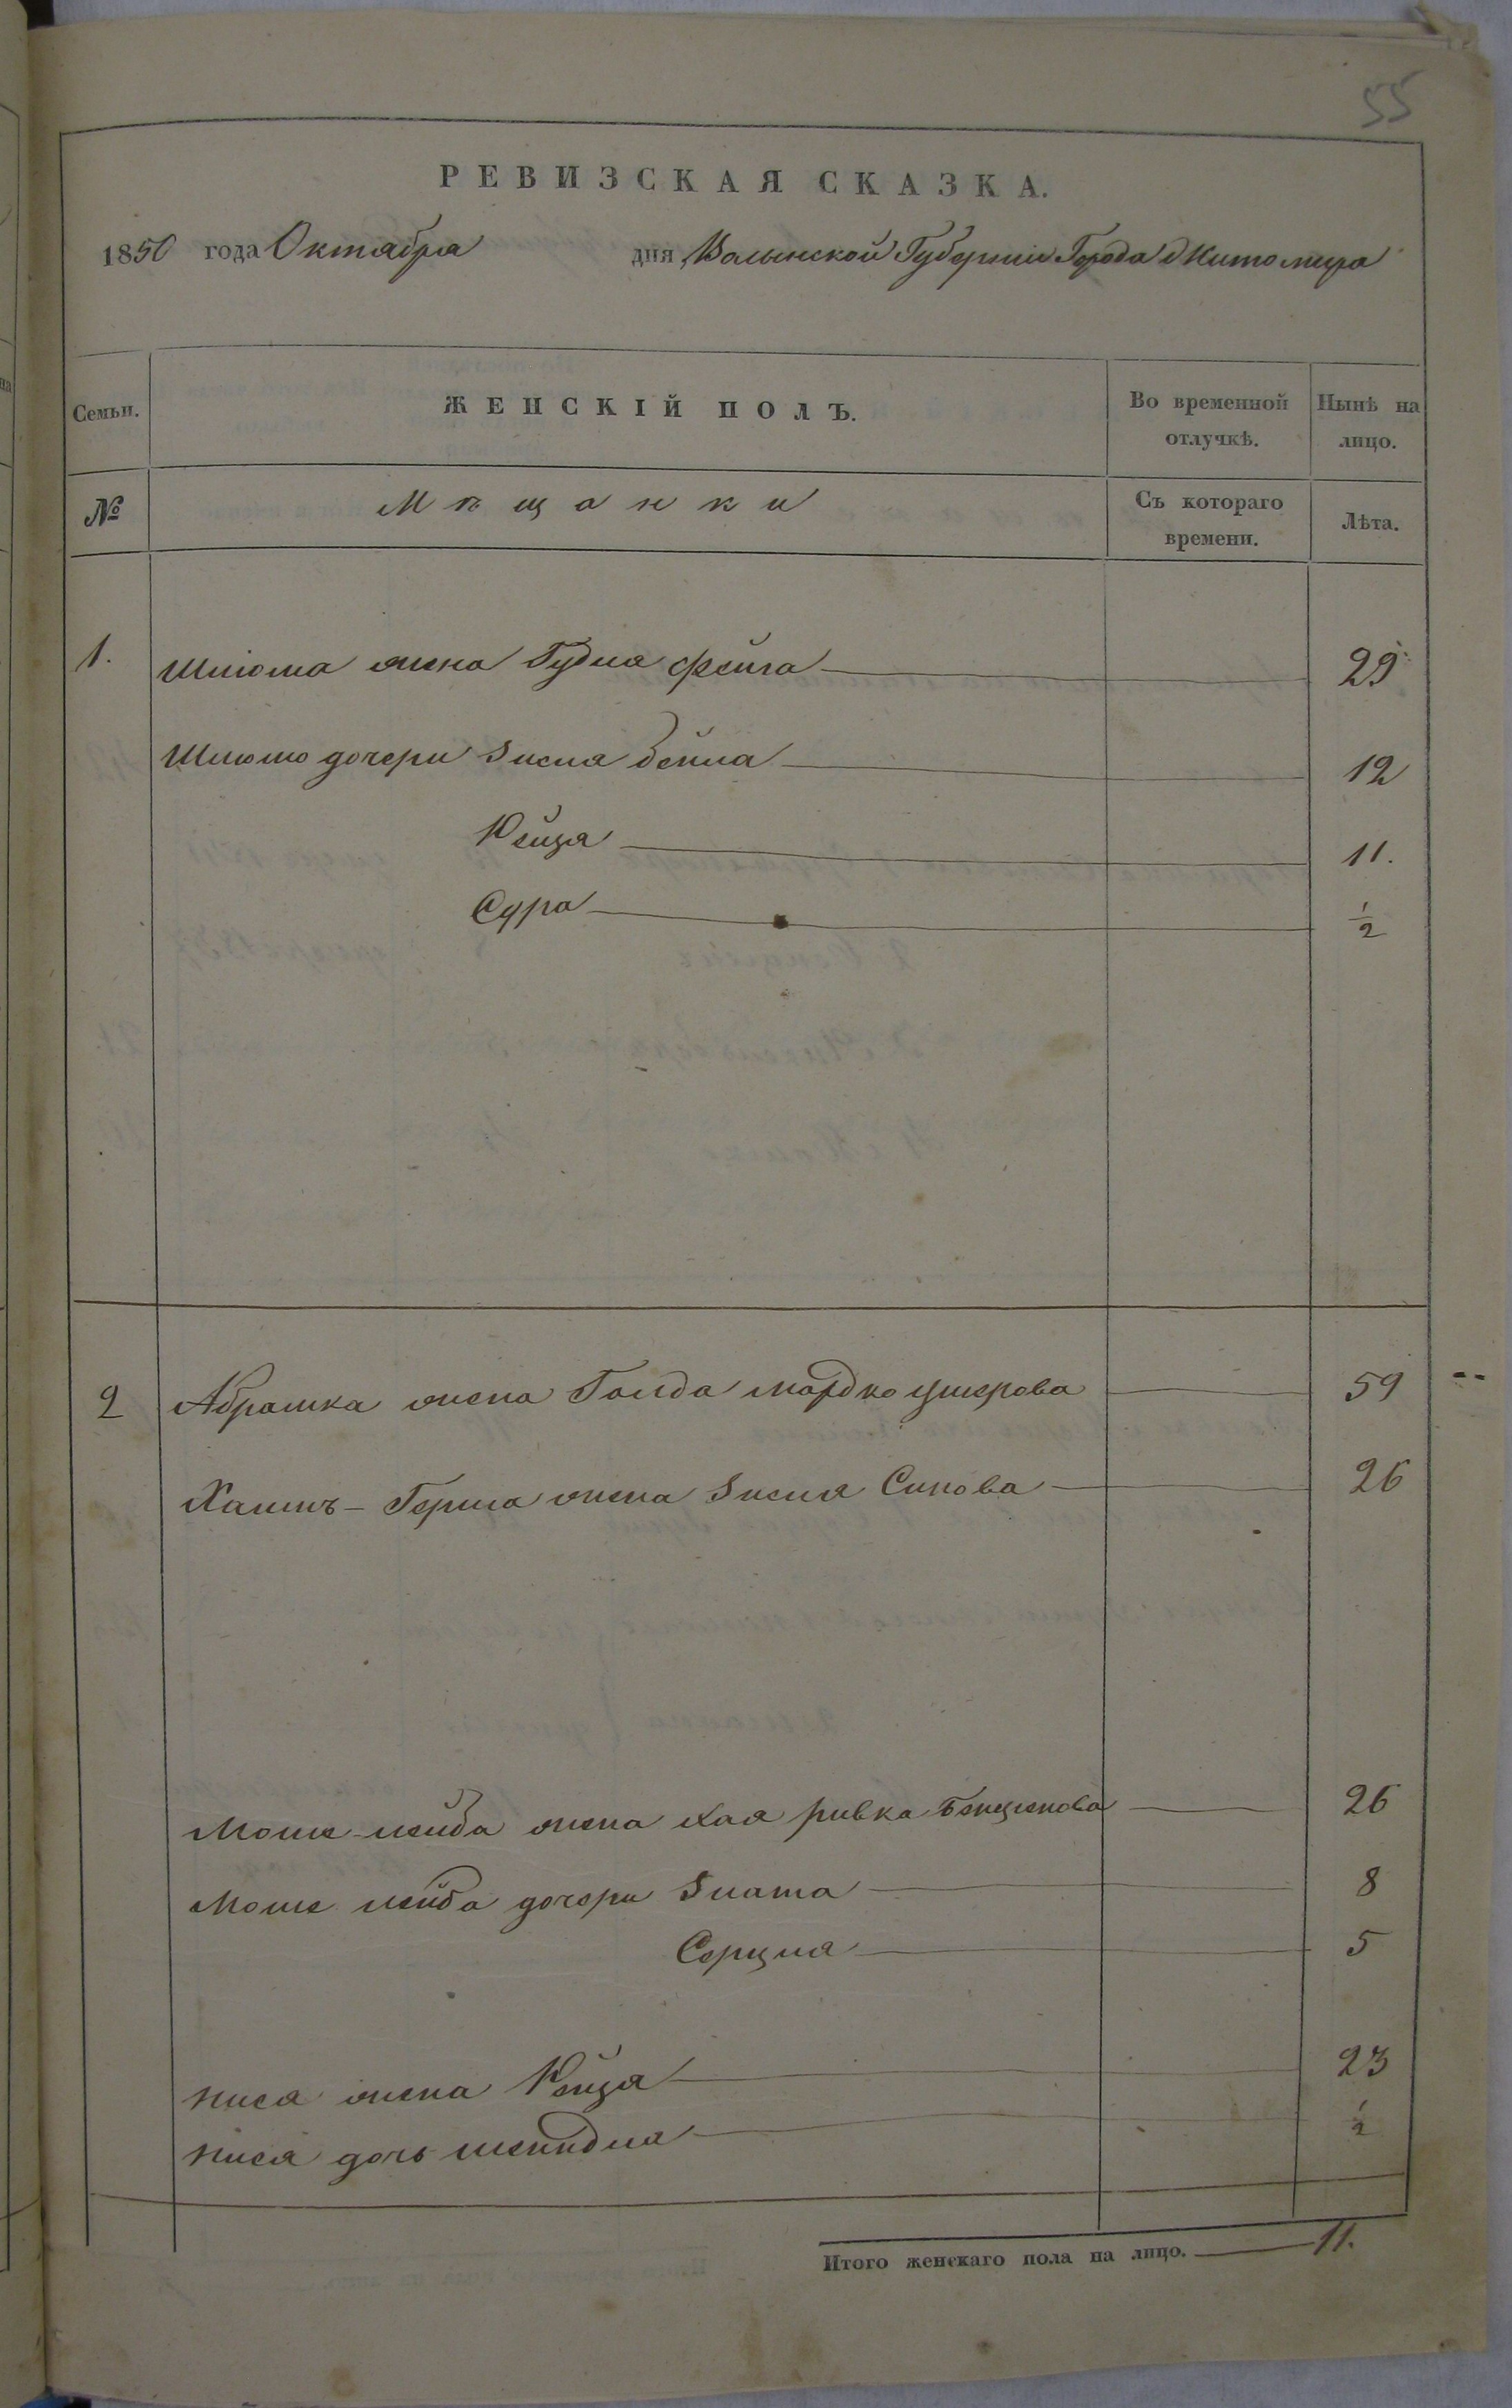 55
РЕВИЗСКАЯ СКАЗКА.
1850 года Октября дня Волынской Губернии Города Житомира
Семьи. ЖЕНСКІЙ ПОЛЪ. Во временной отлучкѣ. Нынѣ на лицо.
№ Мѣщанки Съ котораго времени. Лѣта.
1. Шлiома жена Гудля Фейга 29
Шлiомо дочери Зисля бейла 12
Рейзя 11.
Сура ½
2 Абрамка жена Голда мордко ушерова 59
Хаимъ-Герша жена Зисля 26
Моше-лейба жена хая ривка 26
Моше лейба дочери Злата 8
Серцля 5
Нися жена Рейзя 23
Нися дочь шейндля ½
Итого женскаго пола на лицо. 11.